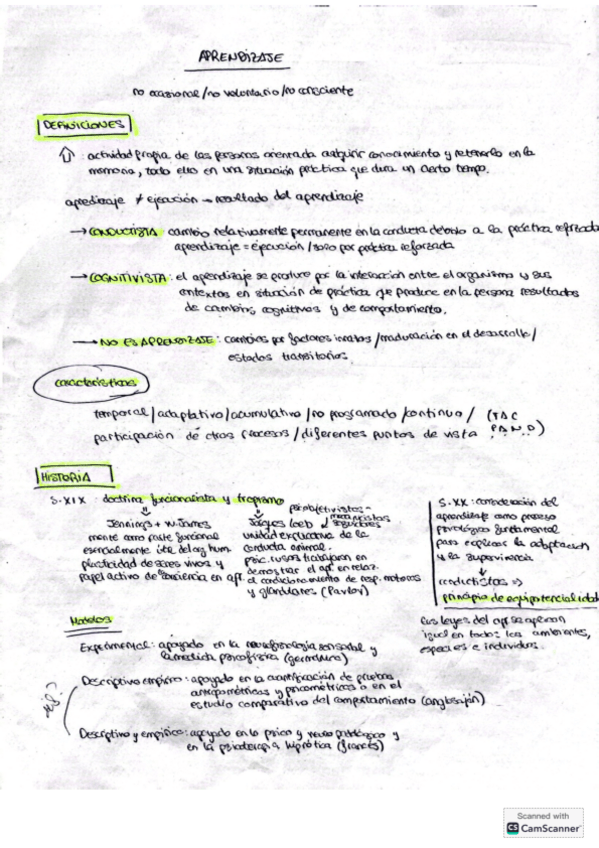 APRENDIZAJE
no ocasional / no voluntario / no consciente
DEFINICIONES
: actividad propia de las personas orientada adquirir conocimiento y retenerlo en la
memoria, todo ello en una situación práctica que dura un cierto tiempo.
aprendizaje ≠ ejecución → resultado del aprendizaje
→ CONDUCTISTA cambio relativamente permanente en la conducta debido a la práctica reforzada
aprendizaje = ejecución / solo por práctica reforzada
→ COGNITIVISTA: el aprendizaje se produce por la interacción entre el organismo y sus
contextos en situación de práctica que produce en la persona resultados
de cambios cognitivos y de comportamiento.
→ NO ES APRENDIZAJE: cambios por factores innatos / maduración en el desarrollo /
estados transitorios.
características
temporal / adaptativo / acumulativo / no programado / continuo / (TAC
participación de otros procesos / diferentes puntos de vista P.A.N.D)
HISTORIA
S. XIX: doctrina funcionalista y tropismo
psicobjetivistas - mecanicistas
Jennings + W. James
mente como parte funcional
esencialmente
plasticidad de seres vivos y
papel activo de consciencia en ap.
Jacques Loeb seguidores
unidad explicativa de la
conducta animal.
psic. rusos trabajaron en
demostrar el ap. en relaz.
el condicionamiento de resp. motoras
y glandulares (Pavlov)
S. XX: consideración del
aprendizaje como proceso
psicológico fundamental
para explicar la adaptación
y la supervivencia
conductistas ⇒
principio de equipotencialidad
las leyes del ap se aplican
igual en todos los ambientes,
especies e individuos.
Modelos
Experimental: apoyado en la neurofisiología sensorial y
la medida psicofísica (germánico)
Descriptivo empírico: apoyado en la cuantificación de pruebas
antropométricas y psicométricas o en el
estudio comparativo del comportamiento (anglosajón)
Descriptivo y empírico: apoyado en lo psico y neuro patológico y
en la psicoterapia hipnótica (francés)
Scanned with
CS CamScanner